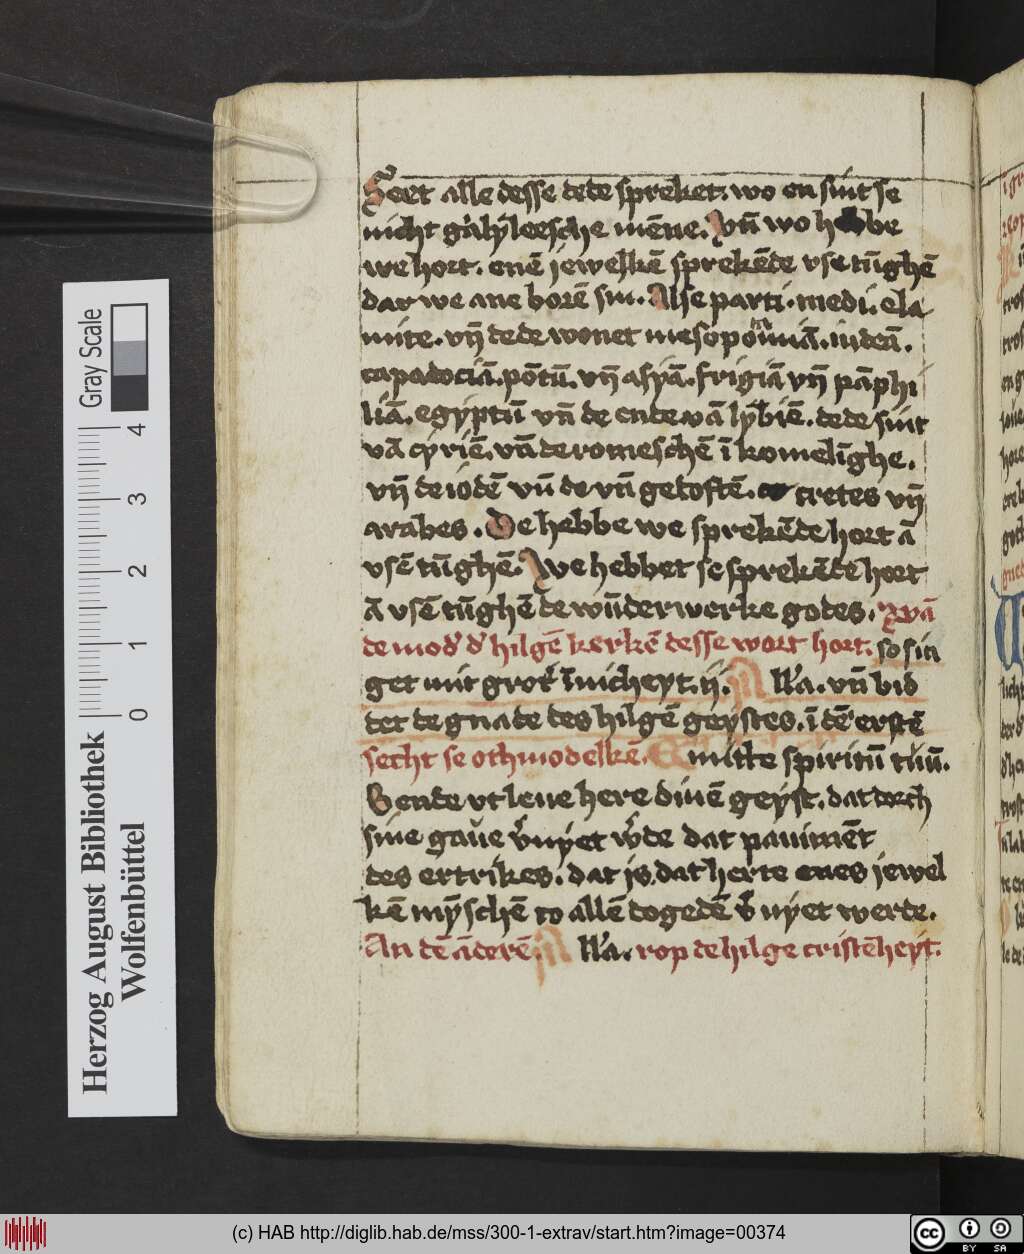 Seet alle desse dede spreket. wo en sint se
nicht galyleesche mēne. Vn̄ wo hebbe
we hort. enē jewelkē sprekēde vse tūghē
dar we ane borē sin. Alse parti. medi. ela
mite. vn̄ dede wonet mesopotamiā. iudeā.
capadociā. pōtū. vn̄ asyā. frigiā vn̄ pāphi
liā. egyptū vn̄ de ende vā lybiē. dede sint
vā cyriē. vn̄ de romeschē ī komelīghe.
vn̄ de iodē vn̄ de vn̄ gedoftē. cretes vn̄
arabes. De hebbe we sprekēde hort ā
vsē tūghē. We hebbet se sprekēde hort
ā vsē tūghē de wūderwerke godes. Wā
de mod' d' hilgē kerkē desse wort hort. so sin
get mit grot' īnicheyt. ij. All'a. vn̄ bid
det de gnade des hilgē geystes. ī dē erstē
secht se othmodelkē. Emitte spiritū tuū.
Sende vt leue here dinē geyst. dat dorch
sine gaue v'nyet w'de dat pauimēt
des ertrikes. dat js. dat herte enes jewel
kē mȳschē to allē dogedē v'nyet werde.
An dē āderē. All'a. rop de hilge cristēheyt.
Herzog August Bibliothek
Wolfenbüttel
Gray Scale
0 1 2 3 4
(c) HAB http://diglib.hab.de/mss/300-1-extrav/start.htm?image=00374
cc BY SA